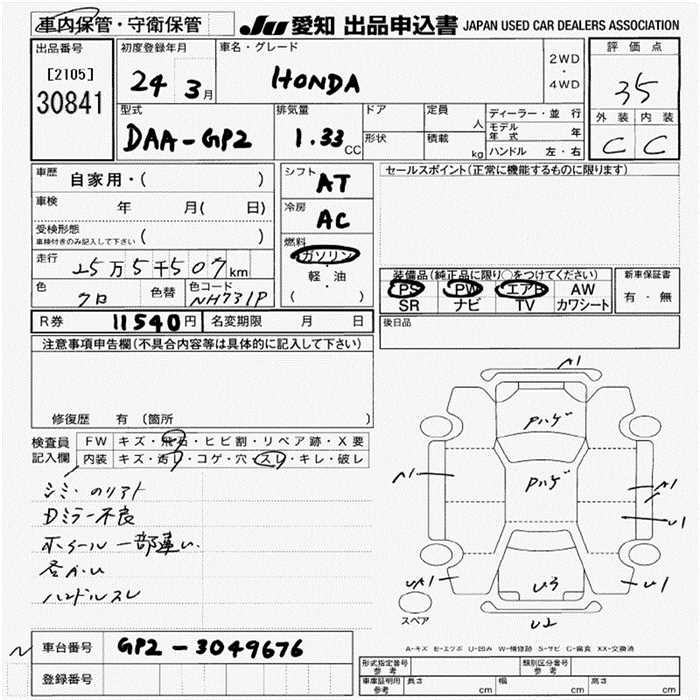 車内保管・守衛保管 JU 愛知 出品申込書 JAPAN USED CAR DEALERS ASSOCIATION
出品番号
[2105]
30841
初度登録年月
24 3月
車名・グレード
HONDA
2WD
・
4WD
評価点
35
外装 内装
C C
型式
DAA-GP2
排気量
1.33 CC
ドア
形状
定員 人
積載 kg
ディーラー・並行
モデル年式 年
ハンドル 左・右
車歴 自家用・( )
車検 年 月( 日)
受検形態
車検付きのみ記入して下さい ( )
走行 25万5千507km
色 クロ 色替 色コード NH731P
シフト AT
冷房 AC
燃料
ガソリン
・
軽・油
( )
セールスポイント(正常に機能するものに限ります)
装備品(純正品に限り○をつけてください)
PS PW エアB AW
SR ナビ TV カワシート
新車保証書
有・無
R券 11540円 名変期限 月 日
後日品
注意事項申告欄(不具合内容等は具体的に記入して下さい)
修復歴 有 (箇所 )
検査員記入欄
FW キズ・飛石・ヒビ割・リペア跡・X要
内装 キズ・汚レ・コゲ・穴・スレ・キレ・破レ
Dミラー不良
ホイール一部違い
ハンドルスレ
A1
Pハゲ
Pハゲ
A1
A1
U1
UA1
U3
U1
U2
スペア
A-キズ E-エクボ U-凹み W-補修跡 S-サビ C-腐食 XX-交換済
車台番号 GP2-3049676
登録番号
形式指定番号 参考
類別区分番号 参考
車庫証明用 参考 長さ cm 幅 cm 高さ cm